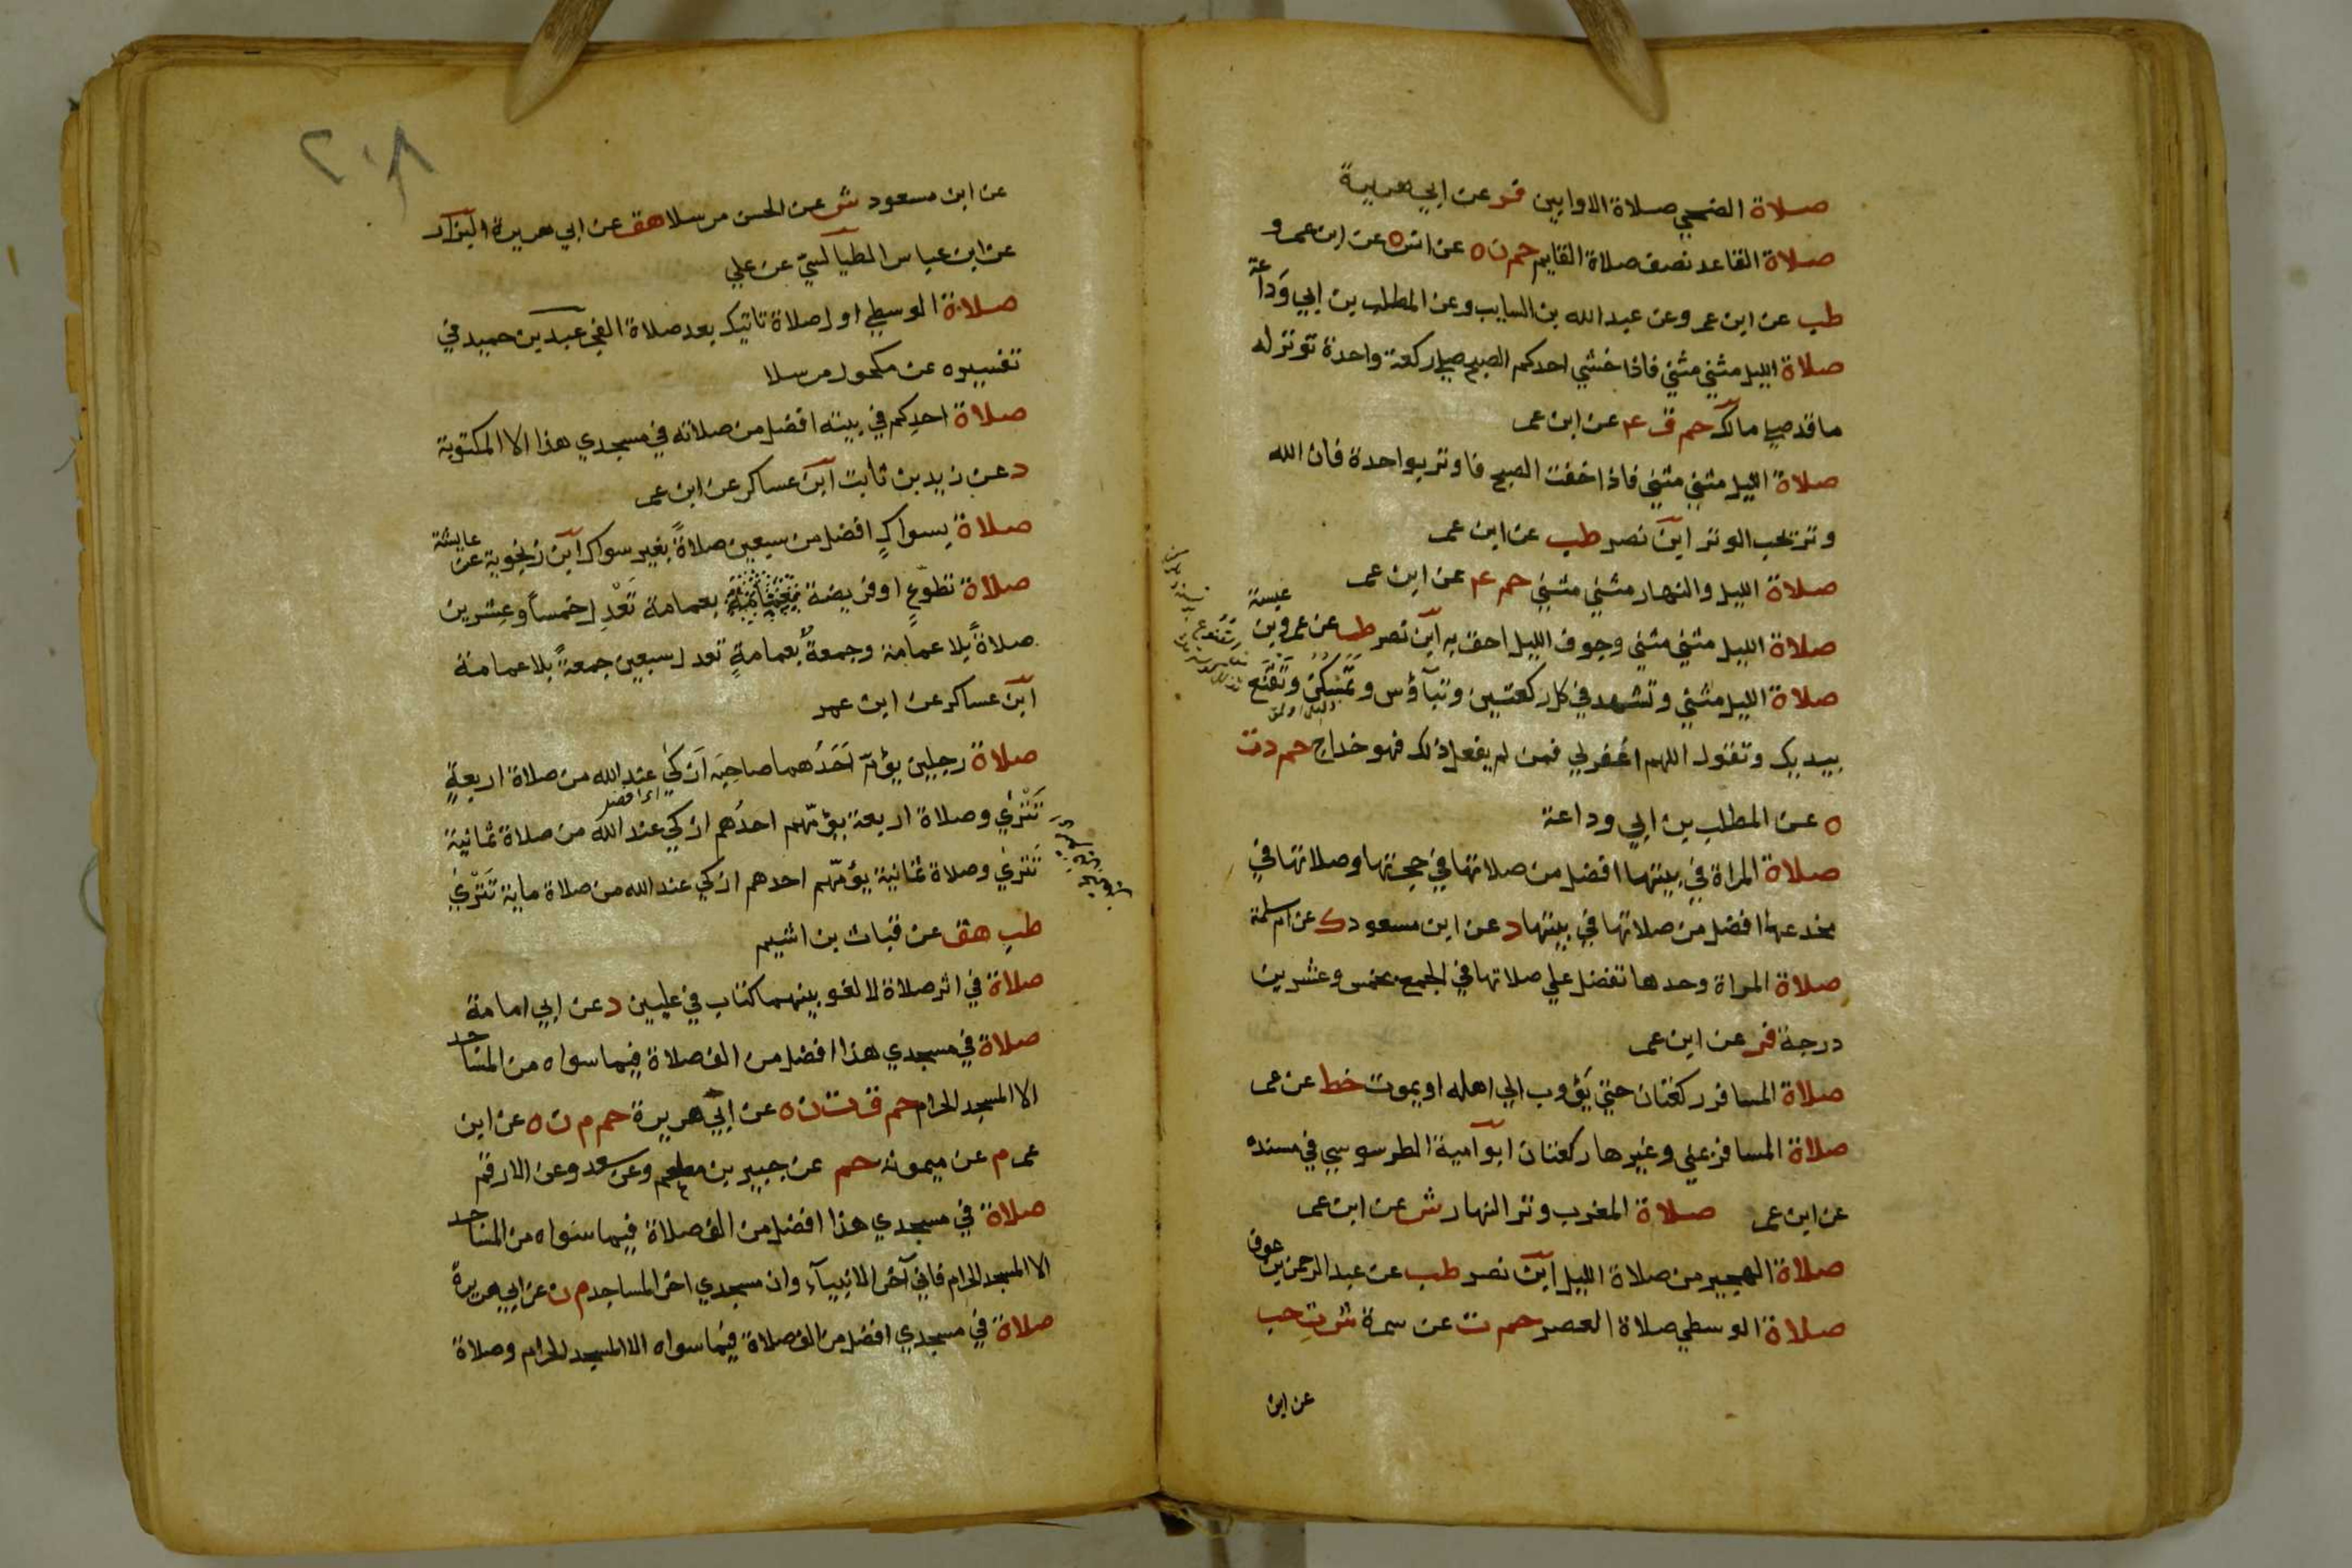 صلاة الضحي صلاة الاوابين فر عن ابي هريرة
صلاة القاعد نصف صلاة القايم حم ن ه عن انس ه عن ابن عمرو
طب عن ابن عمر وعن عبد الله بن السايب وعن المطلب بن ابي وداعة
صلاة الليل مثني مثني فاذا خشي احدكم الصبح صلي ركعة واحدة توتر له
ما قد صلي مالك حم ق ع عن ابن عمر
صلاة الليل مثني مثني فاذا خفت الصبح فاوتر بواحدة فان الله
وتر يحب الوتر ابن نصر طب عن ابن عمر
صلاة الليل والنهار مثني مثني حم ع عن ابن عمر
صلاة الليل مثني مثني وجوف الليل احق به ابن نصر طب عن عمرو بن عبسة
صلاة الليل مثني وتشهد في كل ركعتين وتبآؤس وتمسكن وتقنع
بيديك وتقول اللهم اغفر لي فمن لم يفعل ذلك فهو خداج حم د ت
ه عن المطلب بن ابي وداعة
صلاة المراة في بيتها افضل من صلاتها في حجرتها وصلاتها في
مخدعها افضل من صلاتها في بيتها د عن ابن مسعود ك عن ام سلمة
صلاة المراة وحدها تفضل علي صلاتها في الجمع بخمس وعشرين
درجة فر عن ابن عمر
صلاة المسافر ركعتان حتي يؤوب الي اهله او يموت خط عن عمر
صلاة المسافر بمني وغيرها ركعتان ابو امية الطرسوسي في مسنده
عن ابن عمر صلاة المغرب وتر النهار ش عن ابن عمر
صلاة الهجير من صلاة الليل ابن نصر طب عن عبد الرحمن بن عوف
صلاة الوسطي صلاة العصر حم ت عن سمرة ش ت حب
عن ابن
٢٠٨
عن ابن مسعود ش عن الحسن مرسلا هق عن ابي هريرة البزار
عن ابن عباس الطيالسي عن علي
صلاة الوسطي اول صلاة تاتيك بعد صلاة الفجر عبد بن حميد في
تفسيره عن مكحول مرسلا
صلاة احدكم في بيته افضل من صلاته في مسجدي هذا الا المكتوبة
د عن زيد بن ثابت ابن عساكر عن ابن عمر
صلاة بسواك افضل من سبعين صلاة بغير سواك ابن زنجوية عن عايشة
صلاة تطوع او فريضة بعمامة تعدل خمسا وعشرين
صلاة بلا عمامة وجمعة بعمامة تعدل سبعين جمعة بلا عمامة
ابن عساكر عن ابن عمر
صلاة رجلين يؤم احدهما صاحبه ازكي عند الله من صلاة اربعة
تتري وصلاة اربعة يؤمهم احدهم ازكي عند الله من صلاة ثمانية
تتري وصلاة ثمانية يؤمهم احدهم ازكي عند الله من صلاة ماية تتري
طب هق عن قباث بن اشيم
صلاة في اثر صلاة لا لغو بينهما كتاب في عليين د عن ابي امامة
صلاة في مسجدي هذا افضل من الف صلاة فيما سواه من المساجد
الا المسجد الحرام حم ق ت ن ه عن ابي هريرة حم م ن ه عن ابن
عمر م عن ميمونه حم عن جبير بن مطعم وعن سعد وعن الارقم
صلاة في مسجدي هذا افضل من الف صلاة فيما سواه من المساجد
الا المسجد الحرام فاني آخر الانبيآء وان مسجدي اخر المساجد م ن عن ابي هريرة
صلاة في مسجدي افضل من الف صلاة فيما سواه الا المسجد الحرام وصلاة